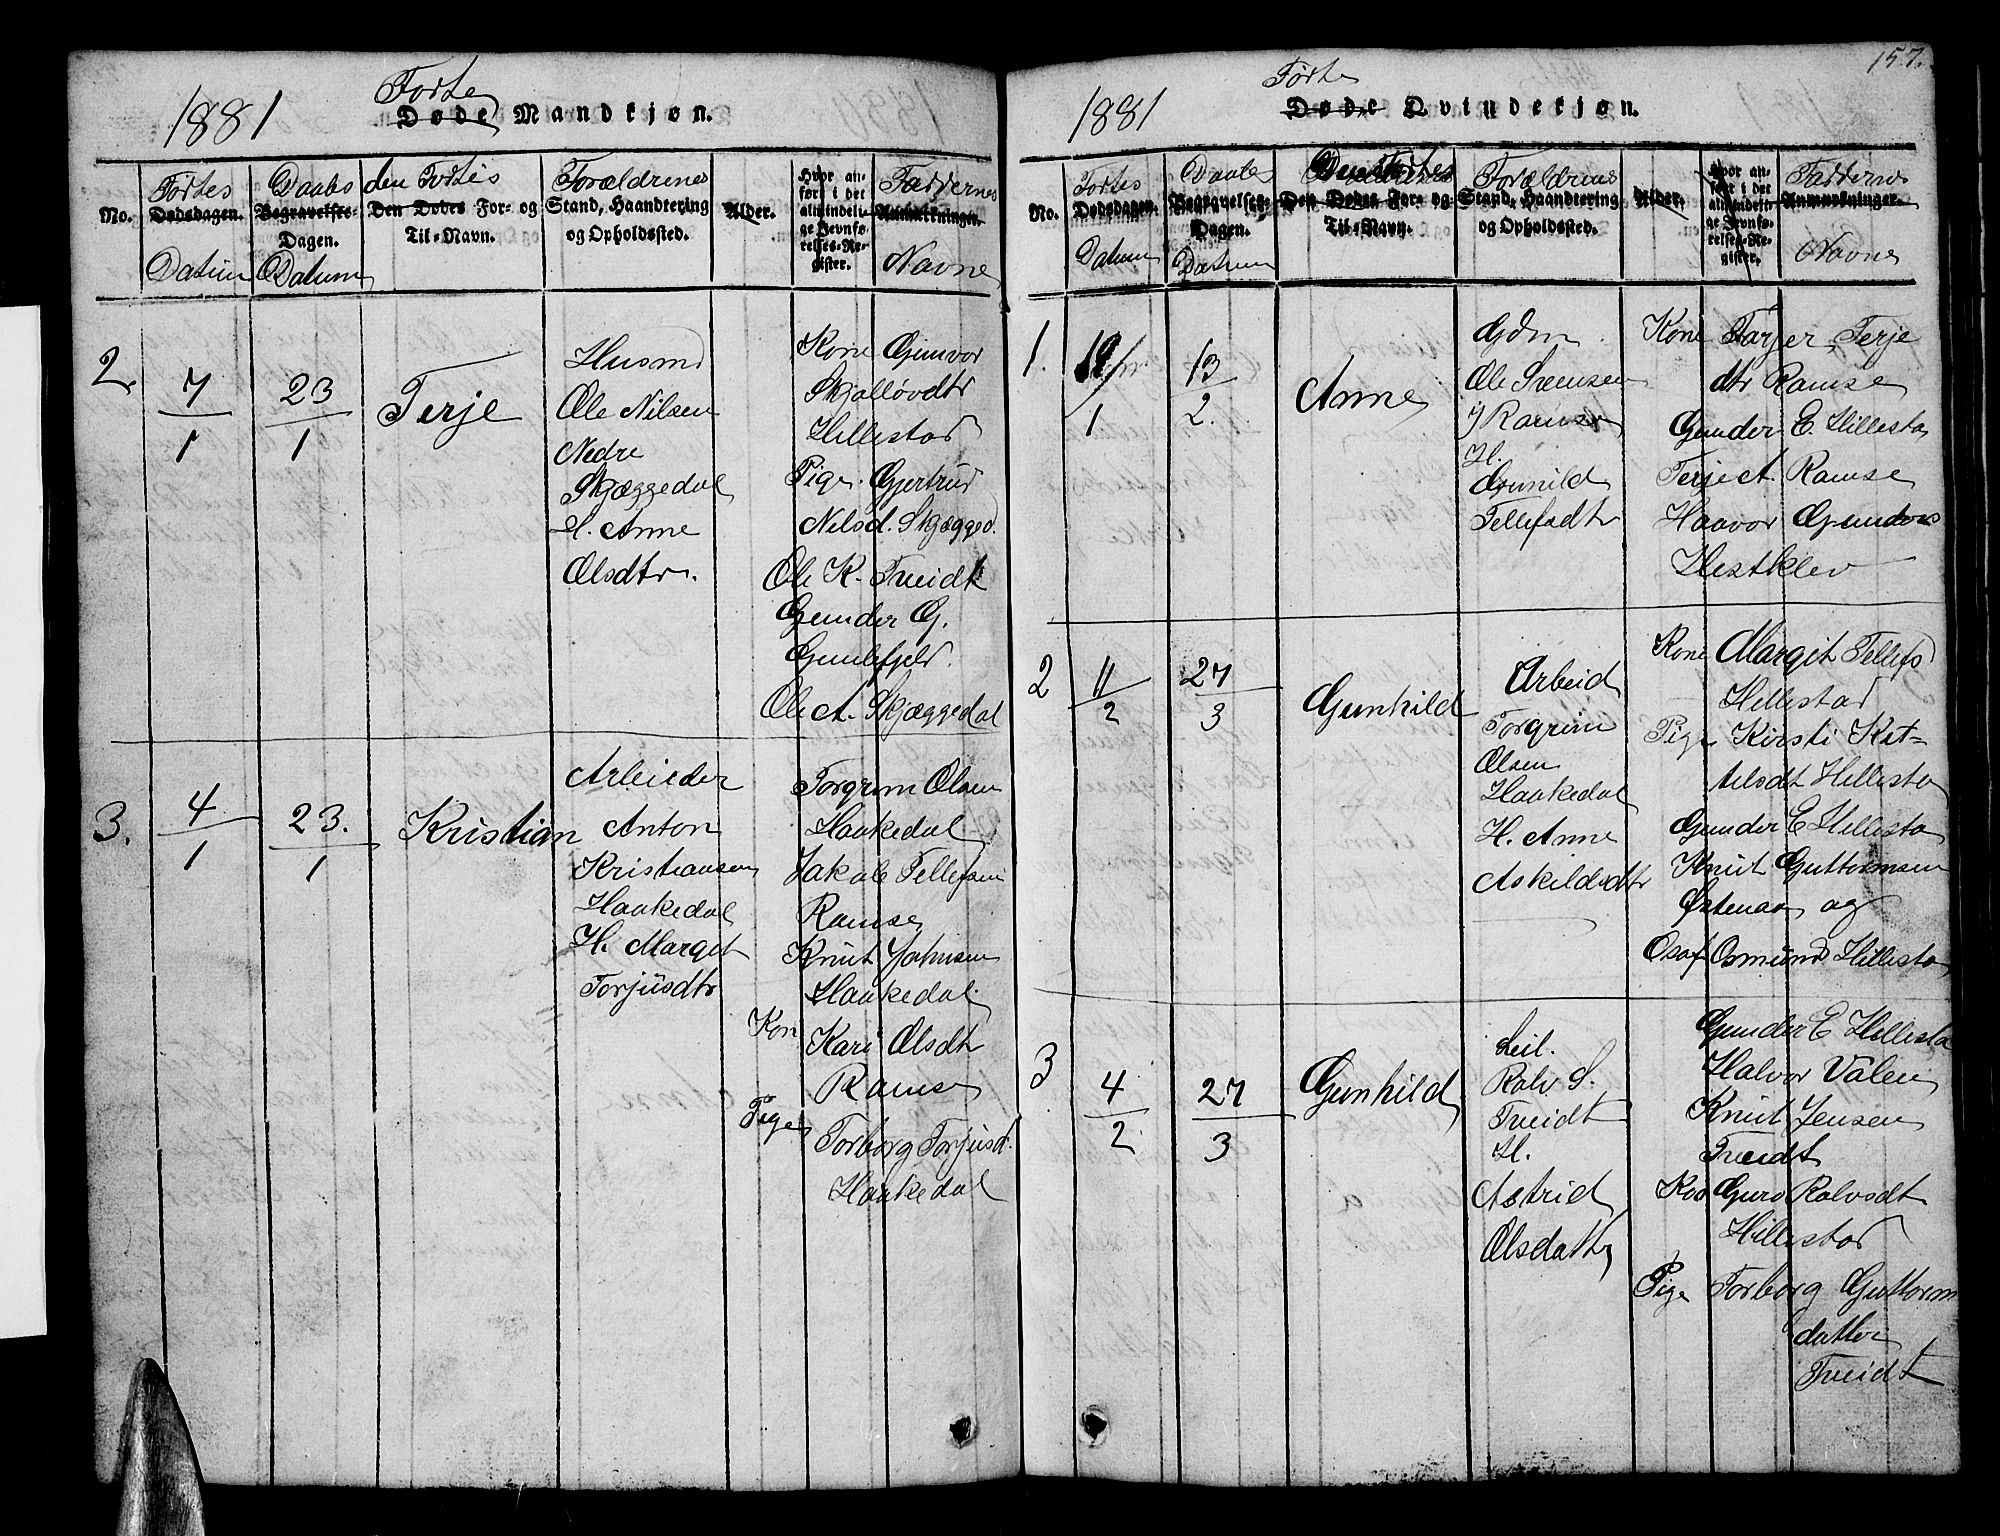 157.
1881
Førte
Døde Mandkjøn.
No.
Førtes
Dødsdagen.
Datum
Daabs
Begravelses-
Dagen.
Datum
den Førtes
Den Dødes For- og
Til-Navn.
Forældrenes
Stand, Haandtering
og Opholdssted.
Alder.
Hvor an-
ført i det
almindeli-
ge Jevnfø-
relses-Re-
gister.
Faddernes
Anmerkninger.
Navne
2.
7
1
23
1
Terje
Husmd
Ole Nilsen
Nedre
Skjæggedal
H. Anne
Olsdtr.
Kone Gunvor
Hillestad
Pige Gjertrud
Nilsd. Skjægged.
Ole K. Tveidt
Gunder G.
Gunlefjeld.
Ole A. Skjæggedal
3.
4
1
23.
1
Kristian
Arbeider
Anton
Kristiansen
Haakedal
H. Margit
Torjüsdtr
Torgrim Olsen
Haakedal
Jakob Tellefsen
Ramse
Knut
Haakedal
Kon
Kari Olsdtr
Ramse
Pige
Torborg Torjusd.
Haakedal
1881
Førte
Døde Qvindekjøn.
No.
Førtes
Dødsdagen.
Datum
Daabs
Begravelses-
Dagen.
Datum
Den Førtes
Den Dødes For- og
Til-Navn.
Forældrenes
Stand, Haandtering
og Opholdssted.
Alder.
Hvor an-
ført i det
almindeli-
ge Jevnfø-
relses-Re-
gister.
Faddernes
Anmærkninger.
Navne
1.
1
13
2.
Anne
Gdm.
Ole Svensen
Ramse
H.
Gunild
Tellefsdtr
Kone Tarjer Terje
dtr Ramse
Gunder E. Hillesta
Terje A. Ramse
Haavor Gunders
Hestklev
2
11
2
27
3
Gunhild
Arbeid
Torgrim
Olsen
Haakedal
H. Anne
Askildsdtr
Kone Margit Tellefsd
Hillestad
Pige Kirsti Ket-
telsdt Hillesta
Gunder E Hillesta
Knut Guttormsen
Østenaa og
Osmund Hillesta
3
4
2
27
3
Gunhild
Leil.
Rolv S.
Tveidt
H.
Astrid
Olsdatter
Gunder E Hillesta
Halvor Valen
Knut Jensen
Tveidt
Kon Guro Rolvsdt
Hillestad
Pige Torborg Guttorm
datter
Tveidt